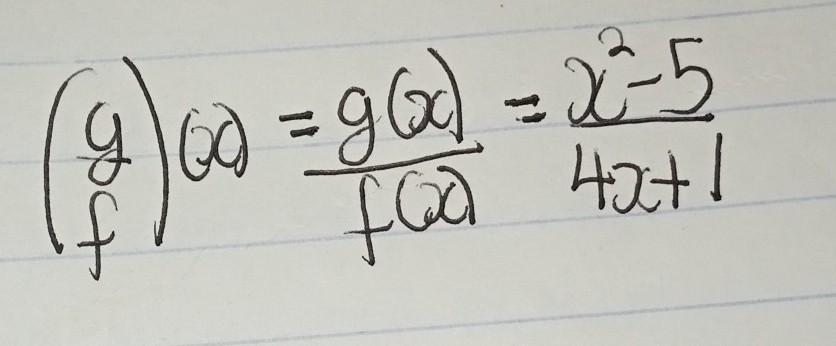 (g/f)(x) = g(x)/f(x) = x²-5/4x+1